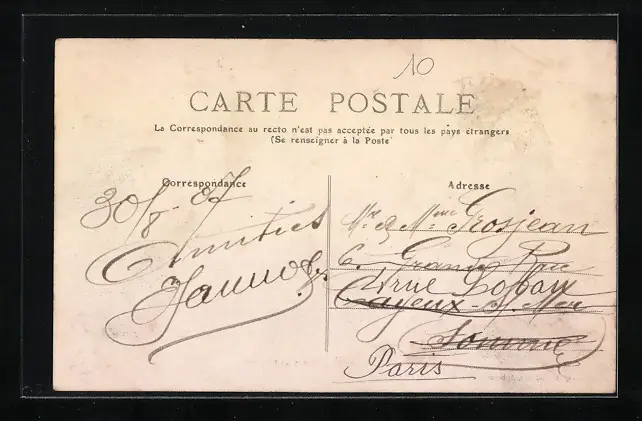 10
CARTE POSTALE
La Correspondance au recto n'est pas acceptée par tous les pays étrangers
(Se renseigner à la Poste
Correspondance
30/8-07
Amitiés
Adresse
Mr & Mme Grosjean
6. Grande Rue
rue Lobau
Cayeux s/ Mer
Somme
Paris